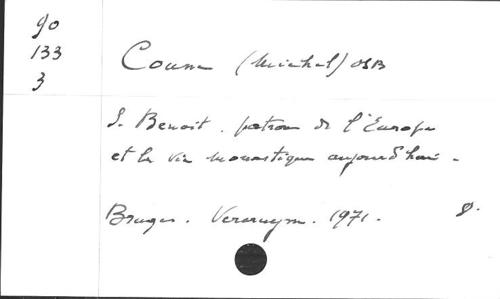 90
133
3
Coune (Michel) OSB
S. Benoit. patron de l'Europe
et la vie monastique aujourd'hui.
Bruges. Verarnym. 1971. 8.